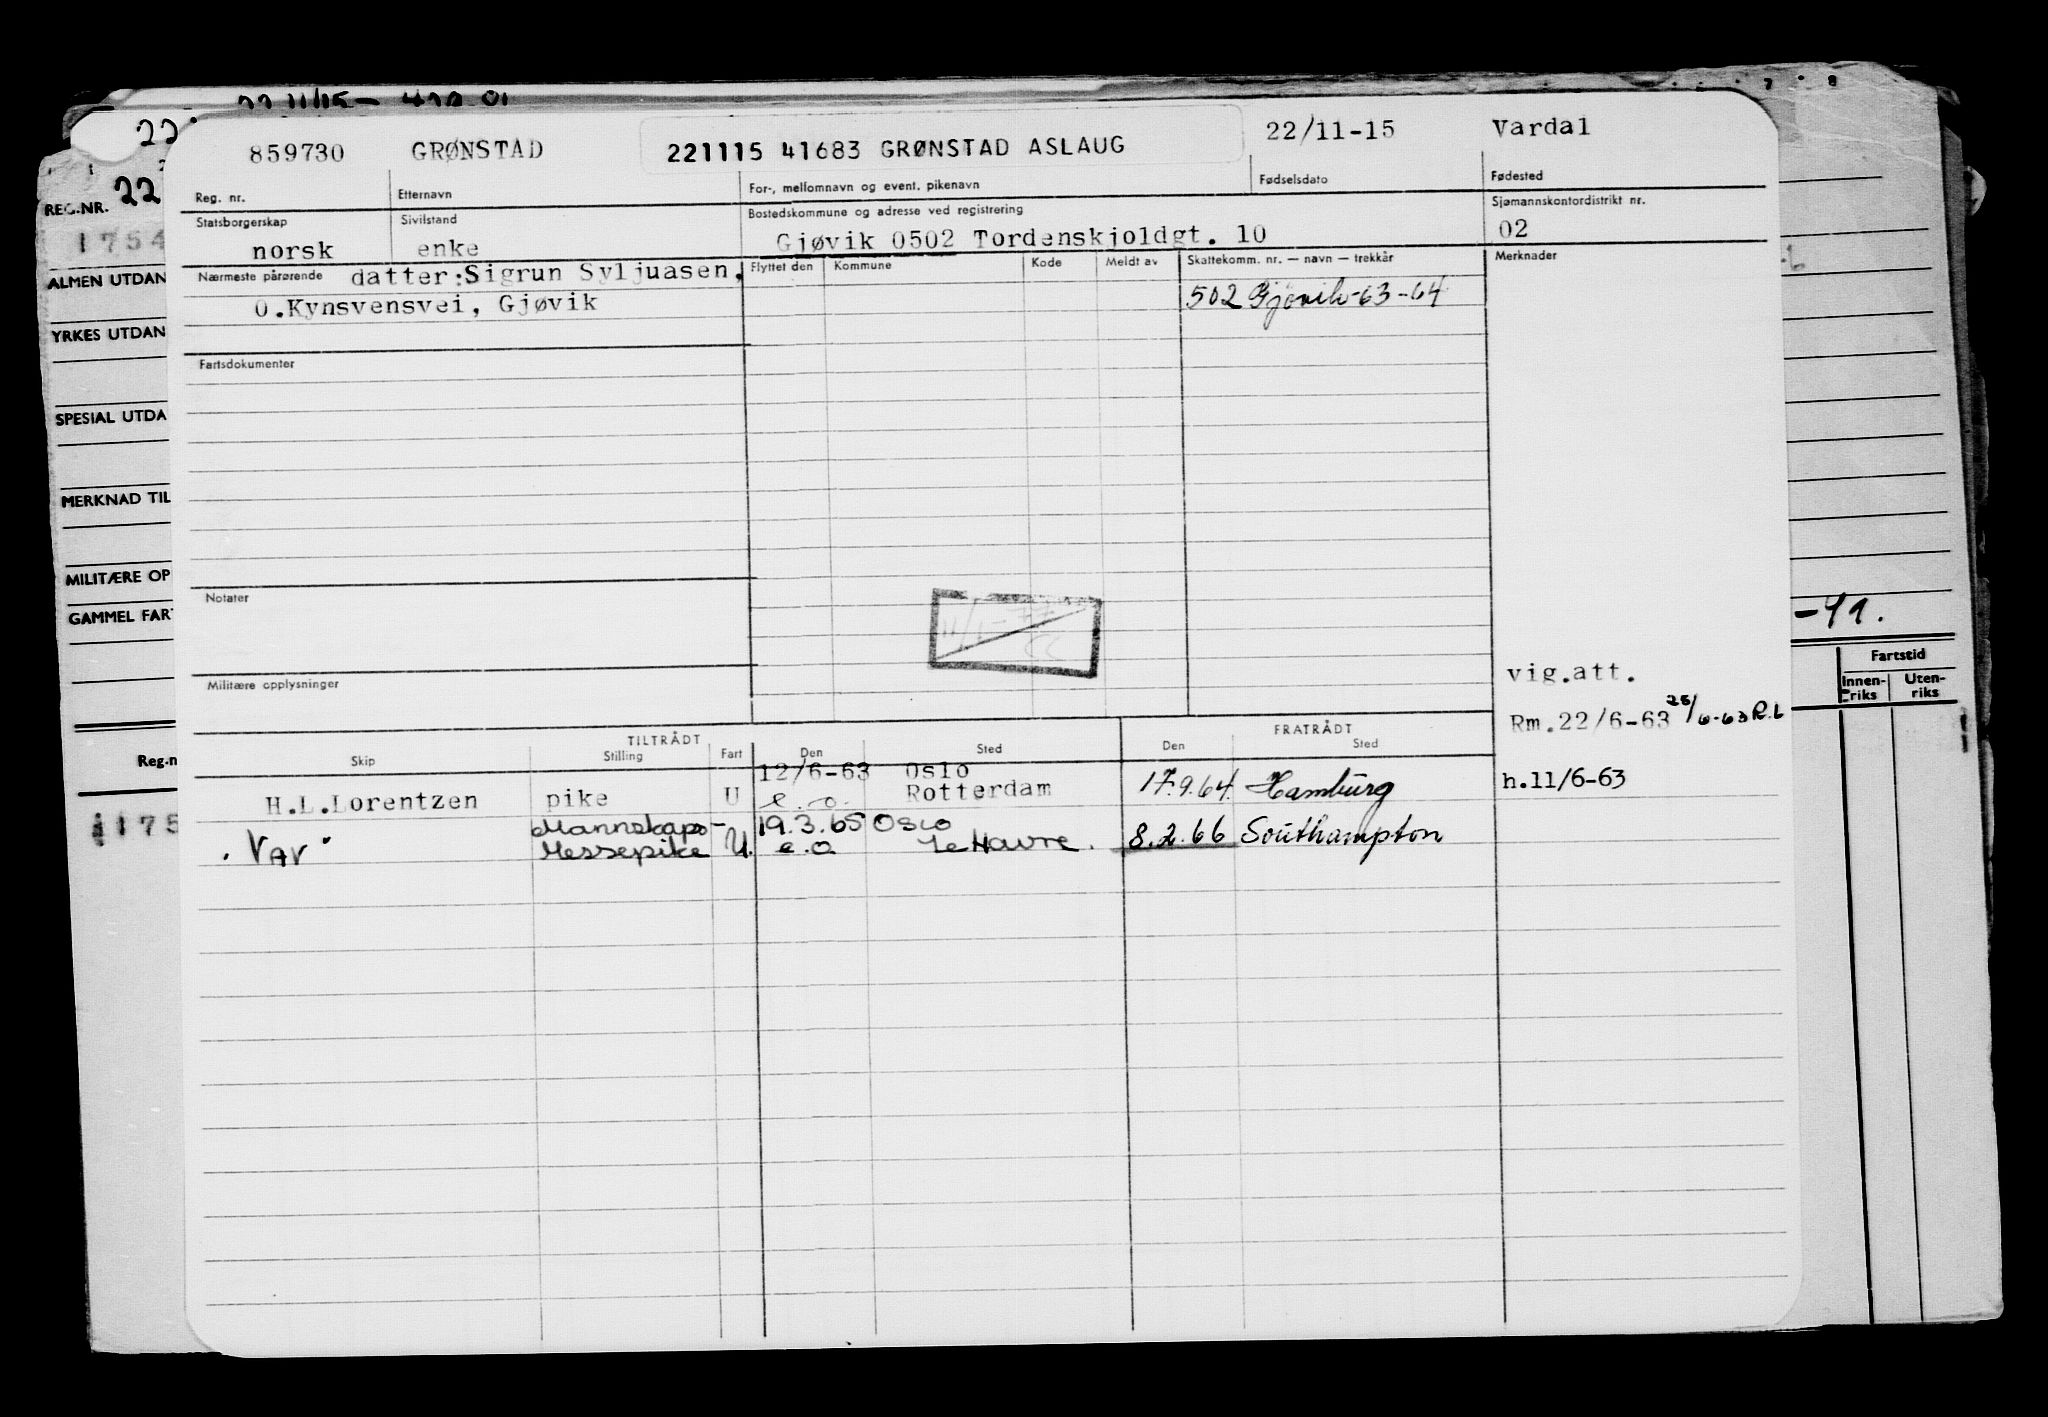 22 11/15- 
22
859730 GRØNSTAD 221115 41683 GRØNSTAD ASLAUG 22/11-15 Vardal
Reg. nr. Etternavn For-, mellomnavn og event. pikenavn Fødselsdato Fødested
REG.NR. 22
Statsborgerskap Sivilstand Bostedskommune og adresse ved registrering Sjømannskontordistrikt nr.
1754 norsk enke Gjøvik 0502 Tordenskjoldgt. 10 02
Nærmeste pårørende datter:Sigrun Syljuasen, Flyttet den Kommune Kode Meldt av Skattekomm. nr. — navn — trekkår Merknader
ALMEN UTDAN
O.Kynsvensvei, Gjøvik 502 Gjøvik-63-64
YRKES UTDAN
Fartsdokumenter
SPESIAL UTDA
MERKNAD TIL
MILITÆRE OP
Notater
GAMMEL FAR
-41.
Militære opplysninger
vig.att.
Fartstid
Innen-riks Uten-riks
Rm.22/6-63 25/6-63 R.L
TILTRÅDT FRATRÅDT
Reg.n Skip Stilling Fart Den Sted Den Sted
12/6-63 Oslo
H.L.Lorentzen pike U e.o. Rotterdam 17.9.64. Hamburg h.11/6-63
175
Mannskaps- 19.3.65 Oslo
"Vav" Messepike U. e.o Le Havre. 8.2.66 Southampton